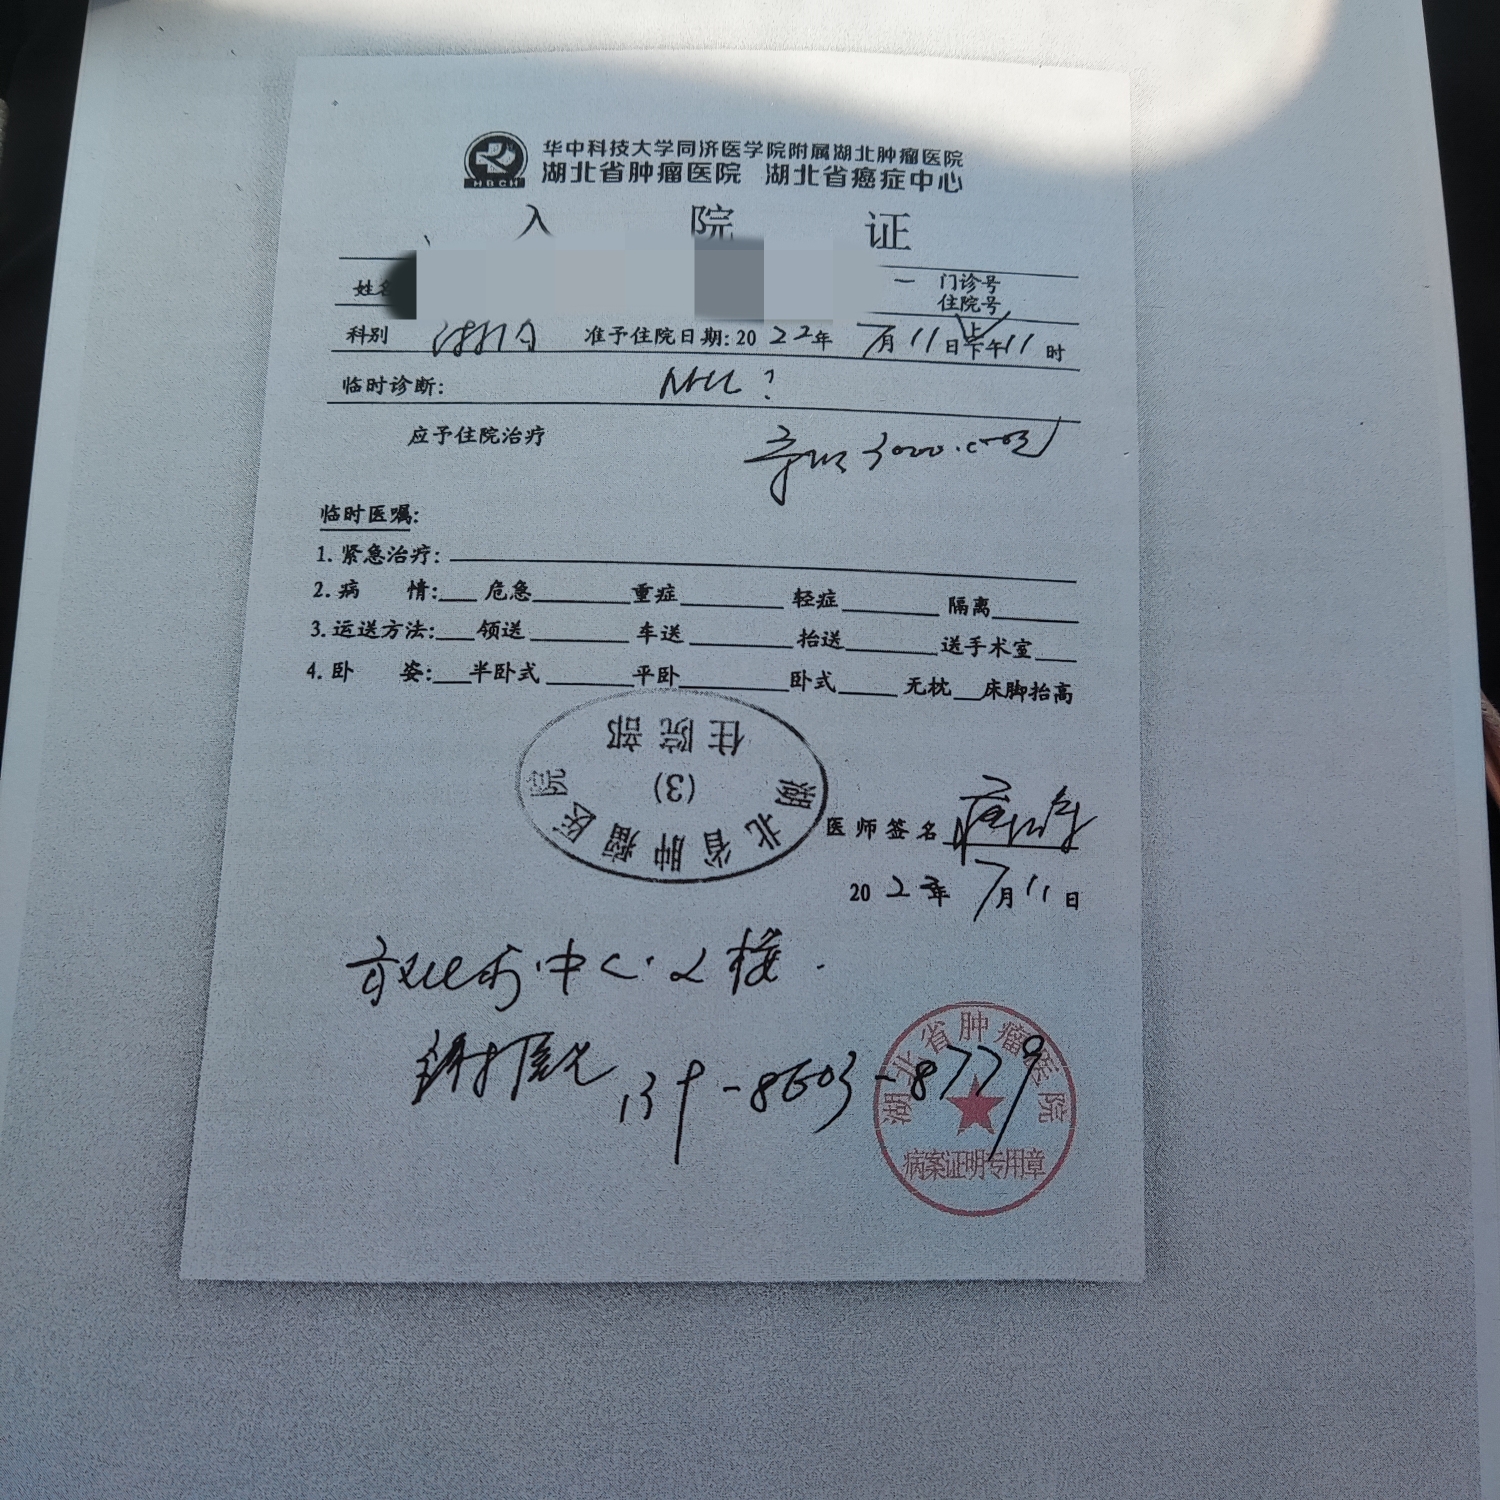 华中科技大学同济医学院附属湖北肿瘤医院
湖北省肿瘤医院 湖北省癌症中心
HBCH
入院证
姓名 一 门诊号
住院号
科别 准予住院日期: 2022年 7月11日上下午11时
临时诊断:
应予住院治疗 3000.
临时医嘱:
1. 紧急治疗:
2. 病 情: 危急 重症 轻症 隔离
3. 运送方法: 领送 车送 抬送 送手术室
4. 卧 姿: 半卧式 平卧 卧式 无枕 床脚抬高
湖北省肿瘤医院
(3)
住院部
医师签名
2022年 7月11日
中心.2楼.
139-8603-8779
湖北省肿瘤医院
病案证明专用章